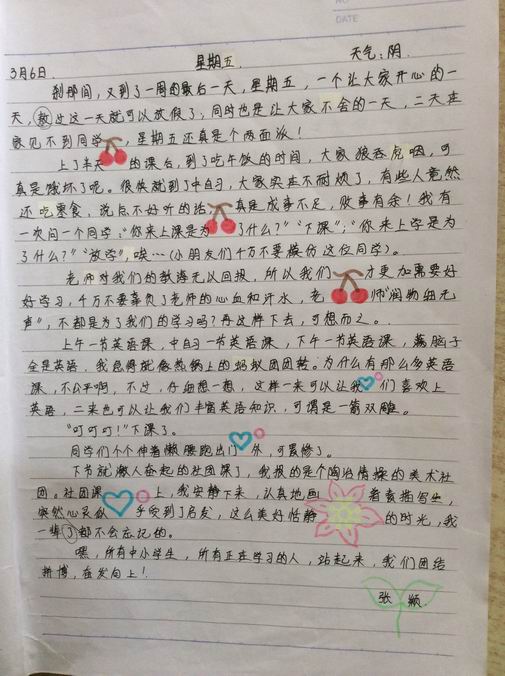 NO
DATE
3月6日. 星期五 天气:阴.
刹那间,又到了一周的最后一天,星期五,一个让大家开心的一
天,教过这一天就可以放假了;同时也是让大家不舍的一天,二天在
家见不到同学,星期五还真是个两面派!
上了半天的课后,到了吃午饭的时间,大家狼吞虎咽,可
真是饿坏了呢。很快就到了中自习,大家实在不耐烦了,有些人竟然
还吃零食、说后不好听的话,真是成事不足,败事有余!我有
一次问一个同学:“你来上课是为了什么?”“下课”;“你来上学是为
了什么?”“放学”,唉…(小朋友们千万不要模仿这位同学)。
老师对我们的教诲无以回报,所以我们才更加需要好
好学习,千万不要辜负了老师的心血和汗水,老师“润物细无
声”,不都是为了我们的学习吗?再这样下去,可想而之。
上午一节英语课,中自习一节英语课,下午一节英语课,满脑子
全是英语,我急得就像热锅上的蚂蚁团团转。为什么有那么多英语
课,不公平啊,不过,仔细想一想,这样一来可以让我们喜欢上
英语,二来也可以让我们丰富英语知识,可谓是一箭双雕。
“叮叮叮!”下课了。
同学们个个伸着懒腰跑出门外,可累惨了。
下节就激人奋起的社团课了,我报的是个陶冶情操的美术社
团。社团课上,我安静下来,认真地画着素描写生,
突然心灵似乎受到了启发,这么美好恬静的时光,我
一辈了都不会忘记的。
嘿,所有中小学生,所有正在学习的人,站起来,我们团结
拼博,奋发向上!
张颖